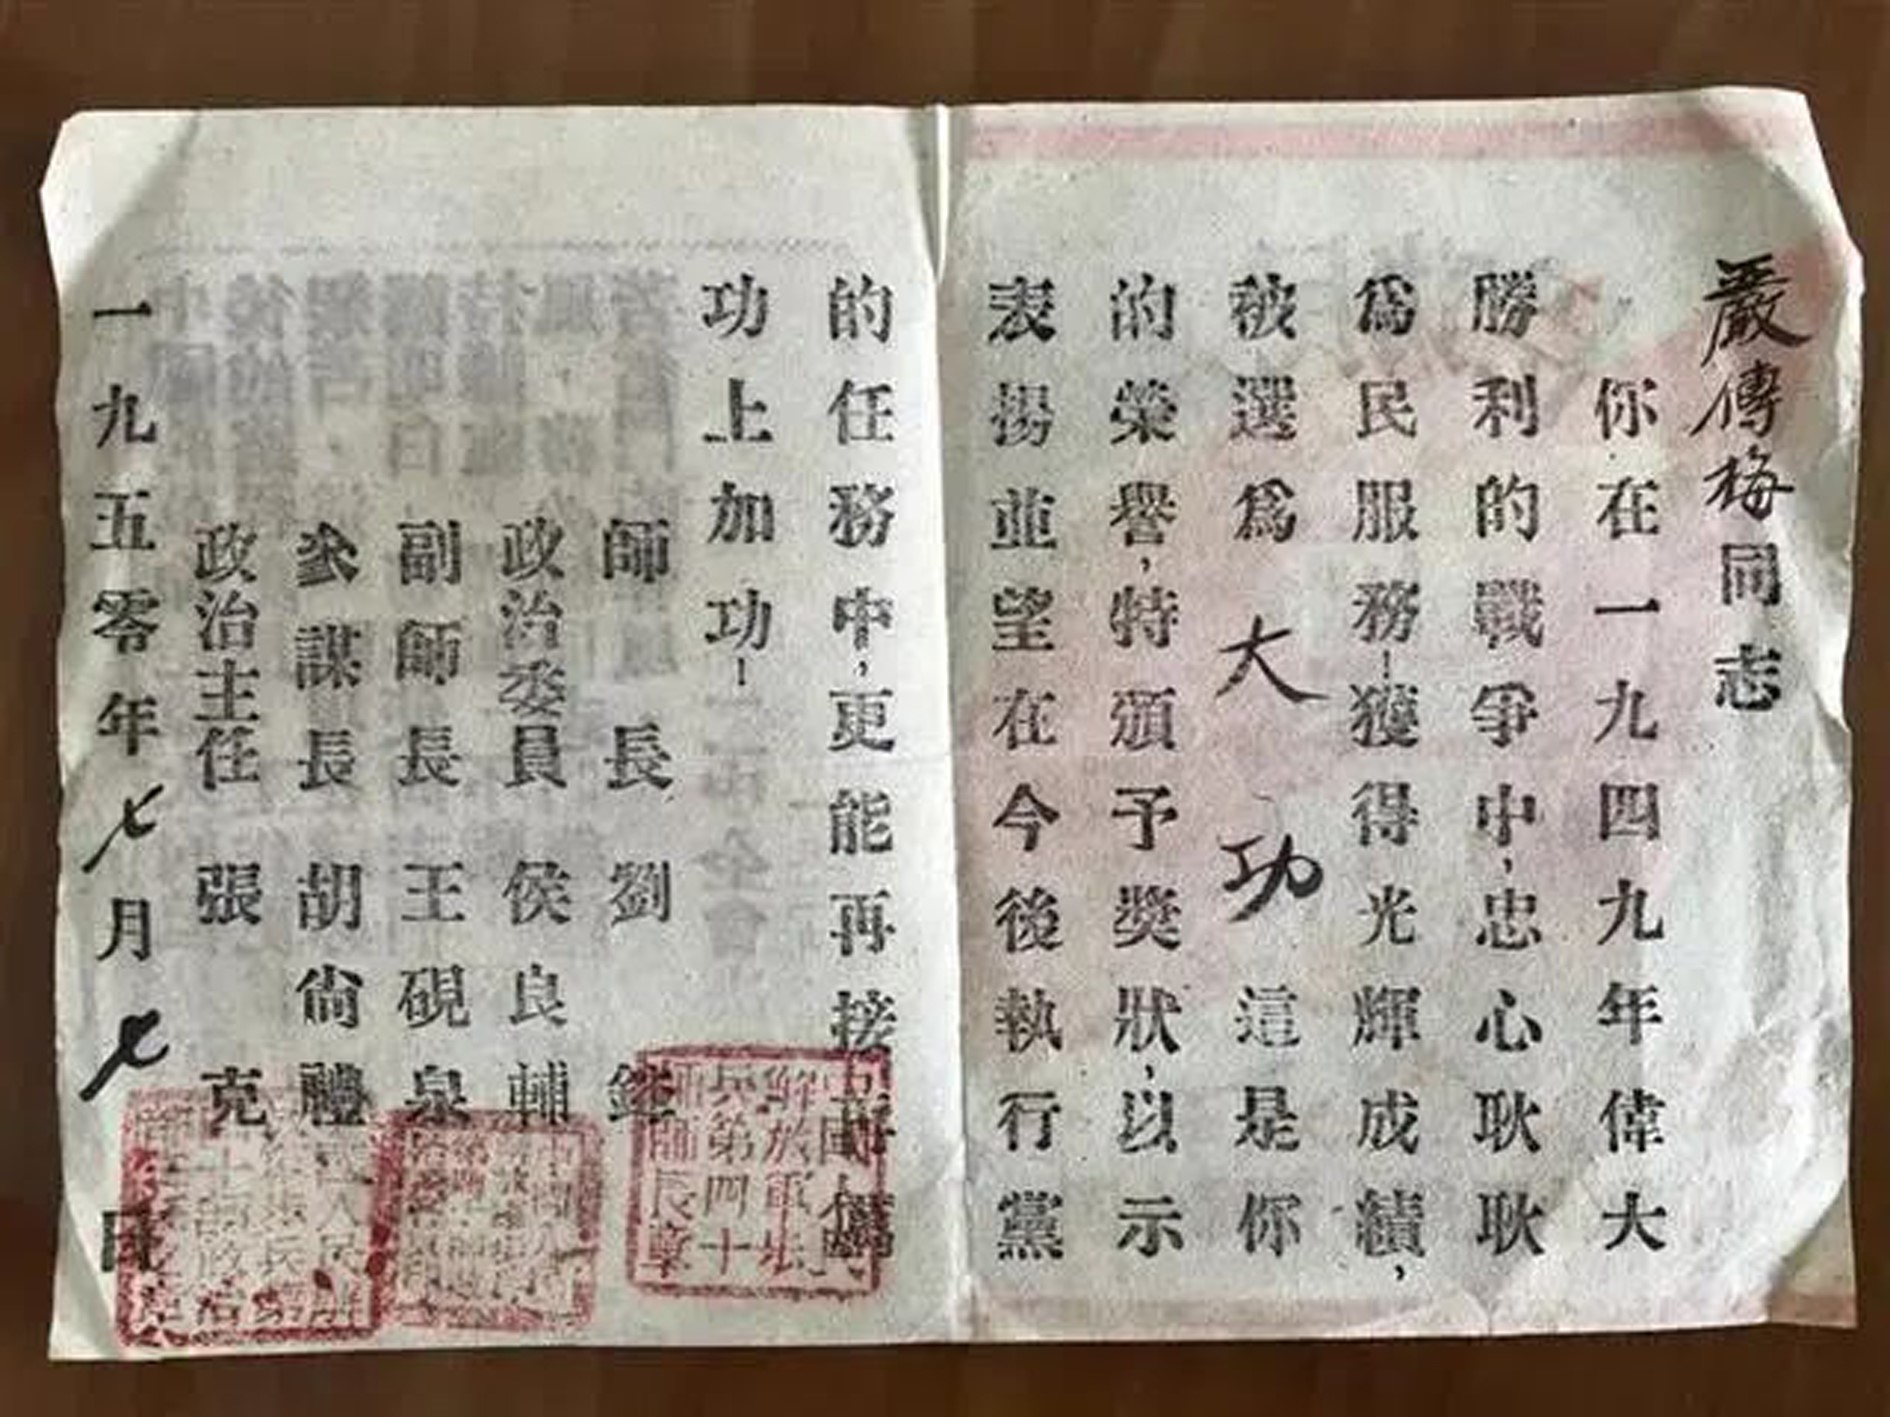 嚴傳梅同志
你在一九四九年偉大
勝利的戰爭中，忠心耿耿
爲民服務！獲得光輝成績，
被選爲大功這是你
的榮譽，特頒予獎狀，以示
表揚並望在今後執行黨
的任務中，更能再接再
功上加功！
師長劉
政治委員侯良輔
副師長王硯泉
參謀長胡尙禮
政治主任張克
一九五零年七月七日
兵第四十
師長章